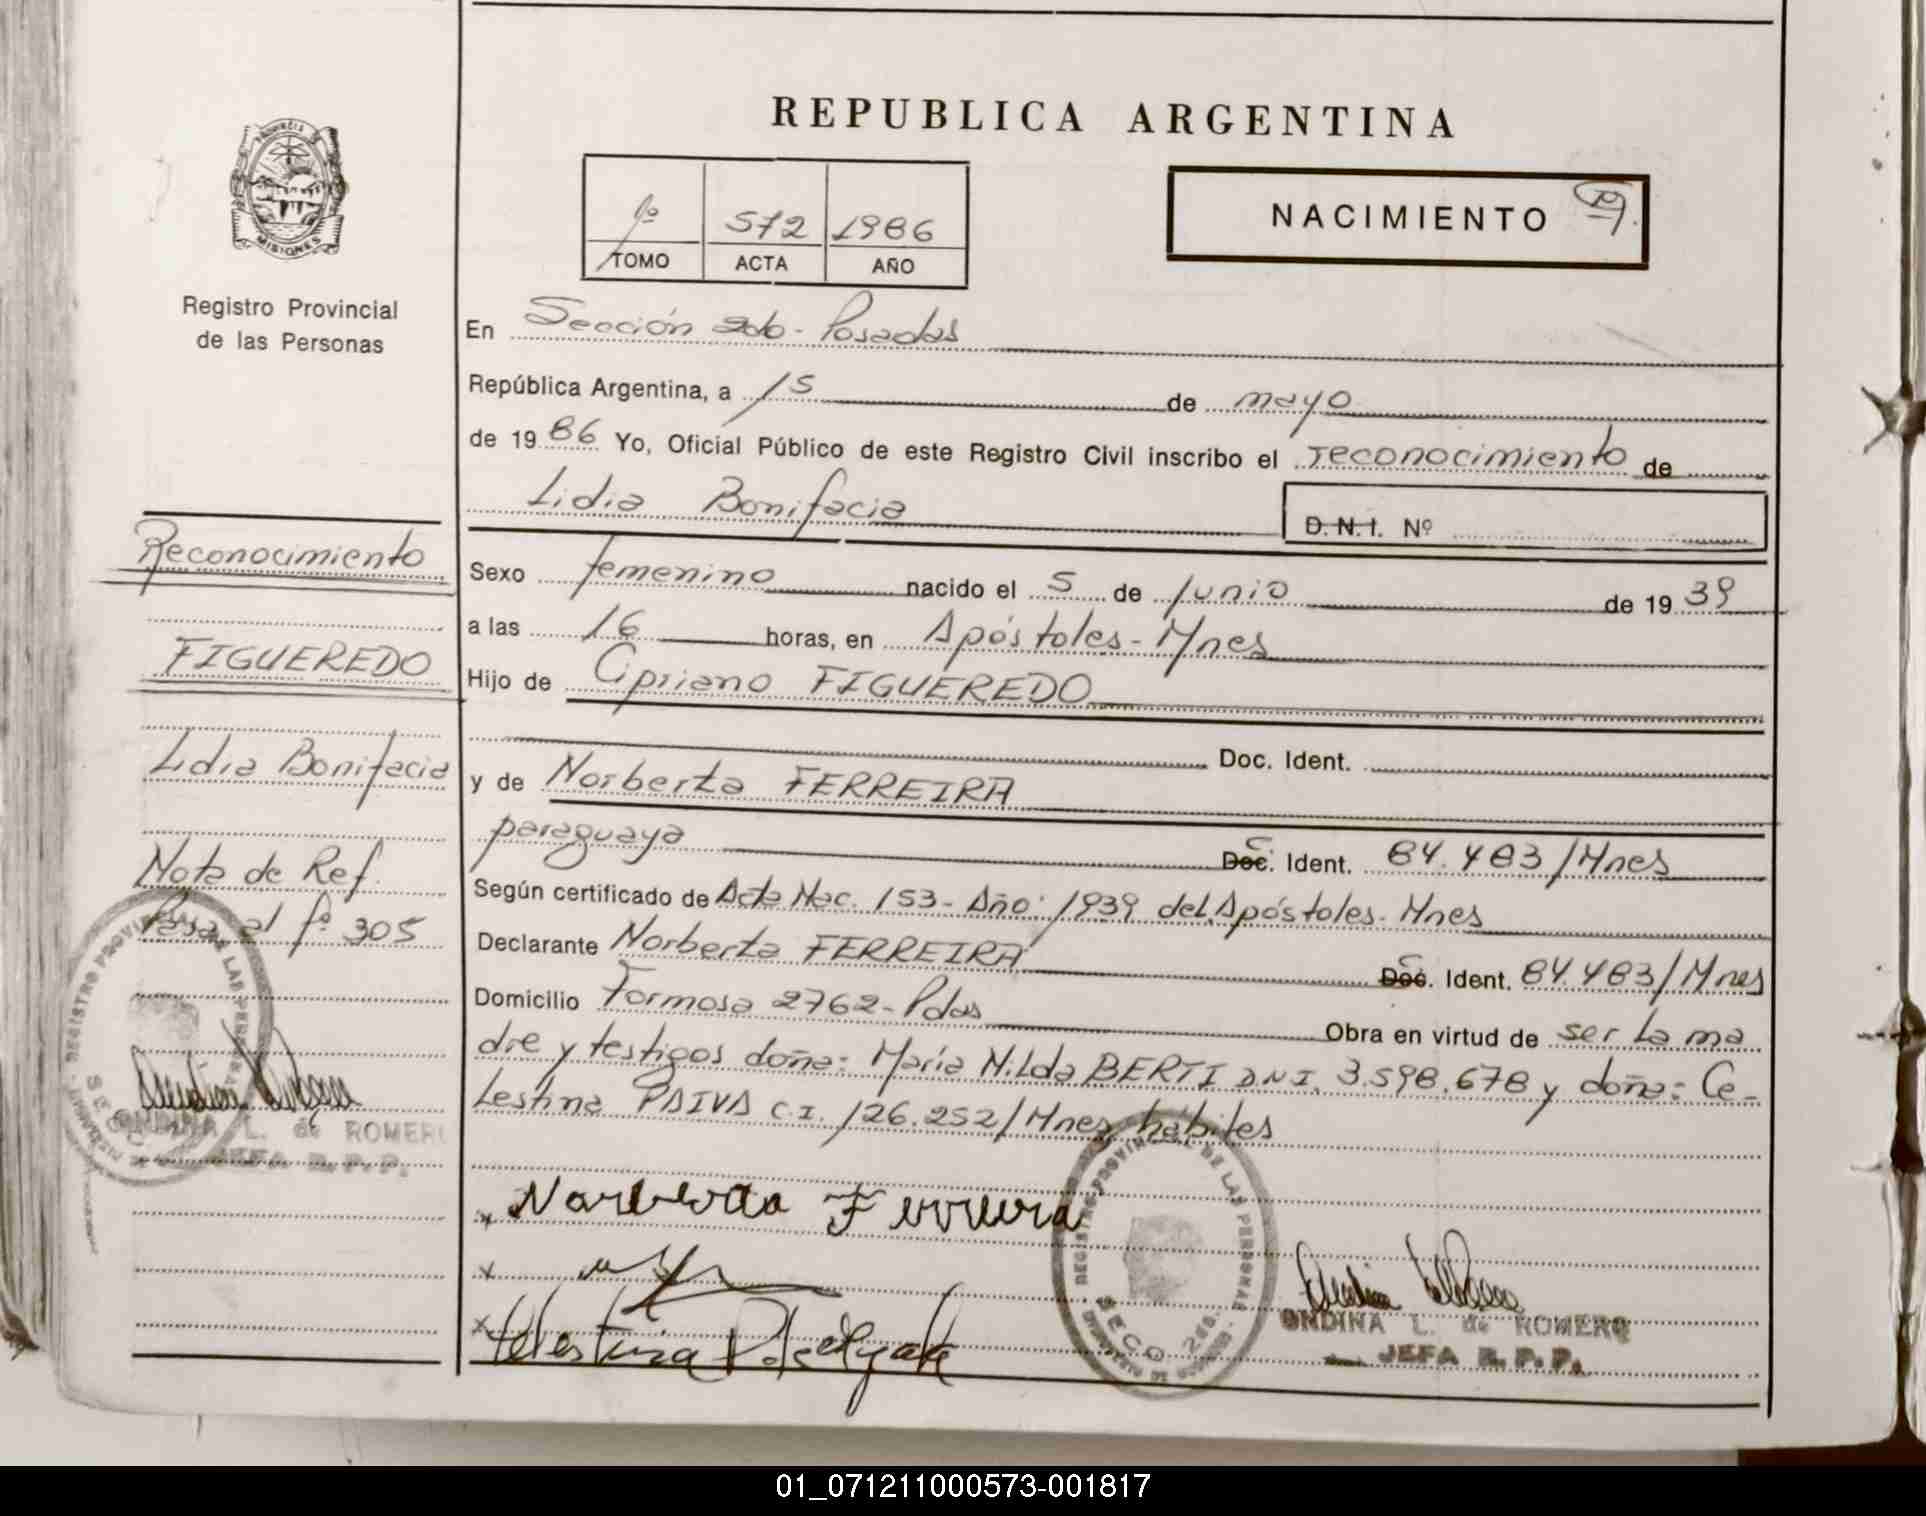 REPUBLICA ARGENTINA
PROVINCIA DE
MISIONES
Registro Provincial
de las Personas
1º 572 1986
TOMO ACTA AÑO
NACIMIENTO
En Sección 2da - Posadas
República Argentina, a 15 de mayo
de 1986 Yo, Oficial Público de este Registro Civil inscribo el reconocimiento de
Lidia Bonifacia D.N.I. Nº
Sexo femenino nacido el 5 de Junio de 1939
a las 16 horas, en Apóstoles - Mnes
Hijo de Cipriano FIGUEREDO
Doc. Ident.
y de Norberta FERREIRA
paraguaya C. Ident. 84.483/Mnes
Según certificado de Acta Nac. 153 - Año: 1939 del Apóstoles - Mnes
Declarante Norberta FERREIRA C. Ident. 84.483/Mnes
Domicilio Formosa 2762 - Pdas Obra en virtud de ser la ma
dre y testigos doña: María Nilda BERTI D.N.I. 3.598.678 y doña: Ce-
lestina PAIVA C.I. 126.252/Mnes, hábiles
x Norberta Ferreira
x
x
REGISTRO PROVINCIAL DE LAS PERSONAS
SECC. 2da.
ONDINA L. de ROMERO
JEFA R.P.P.
Reconocimiento
FIGUEREDO
Lidia Bonifacia
Nota de Ref.
Pasa al fº 305
REGISTRO PROVINCIAL DE LAS PERSONAS
ONDINA L. de ROMERO
JEFA R.P.P.
01_071211000573-001817